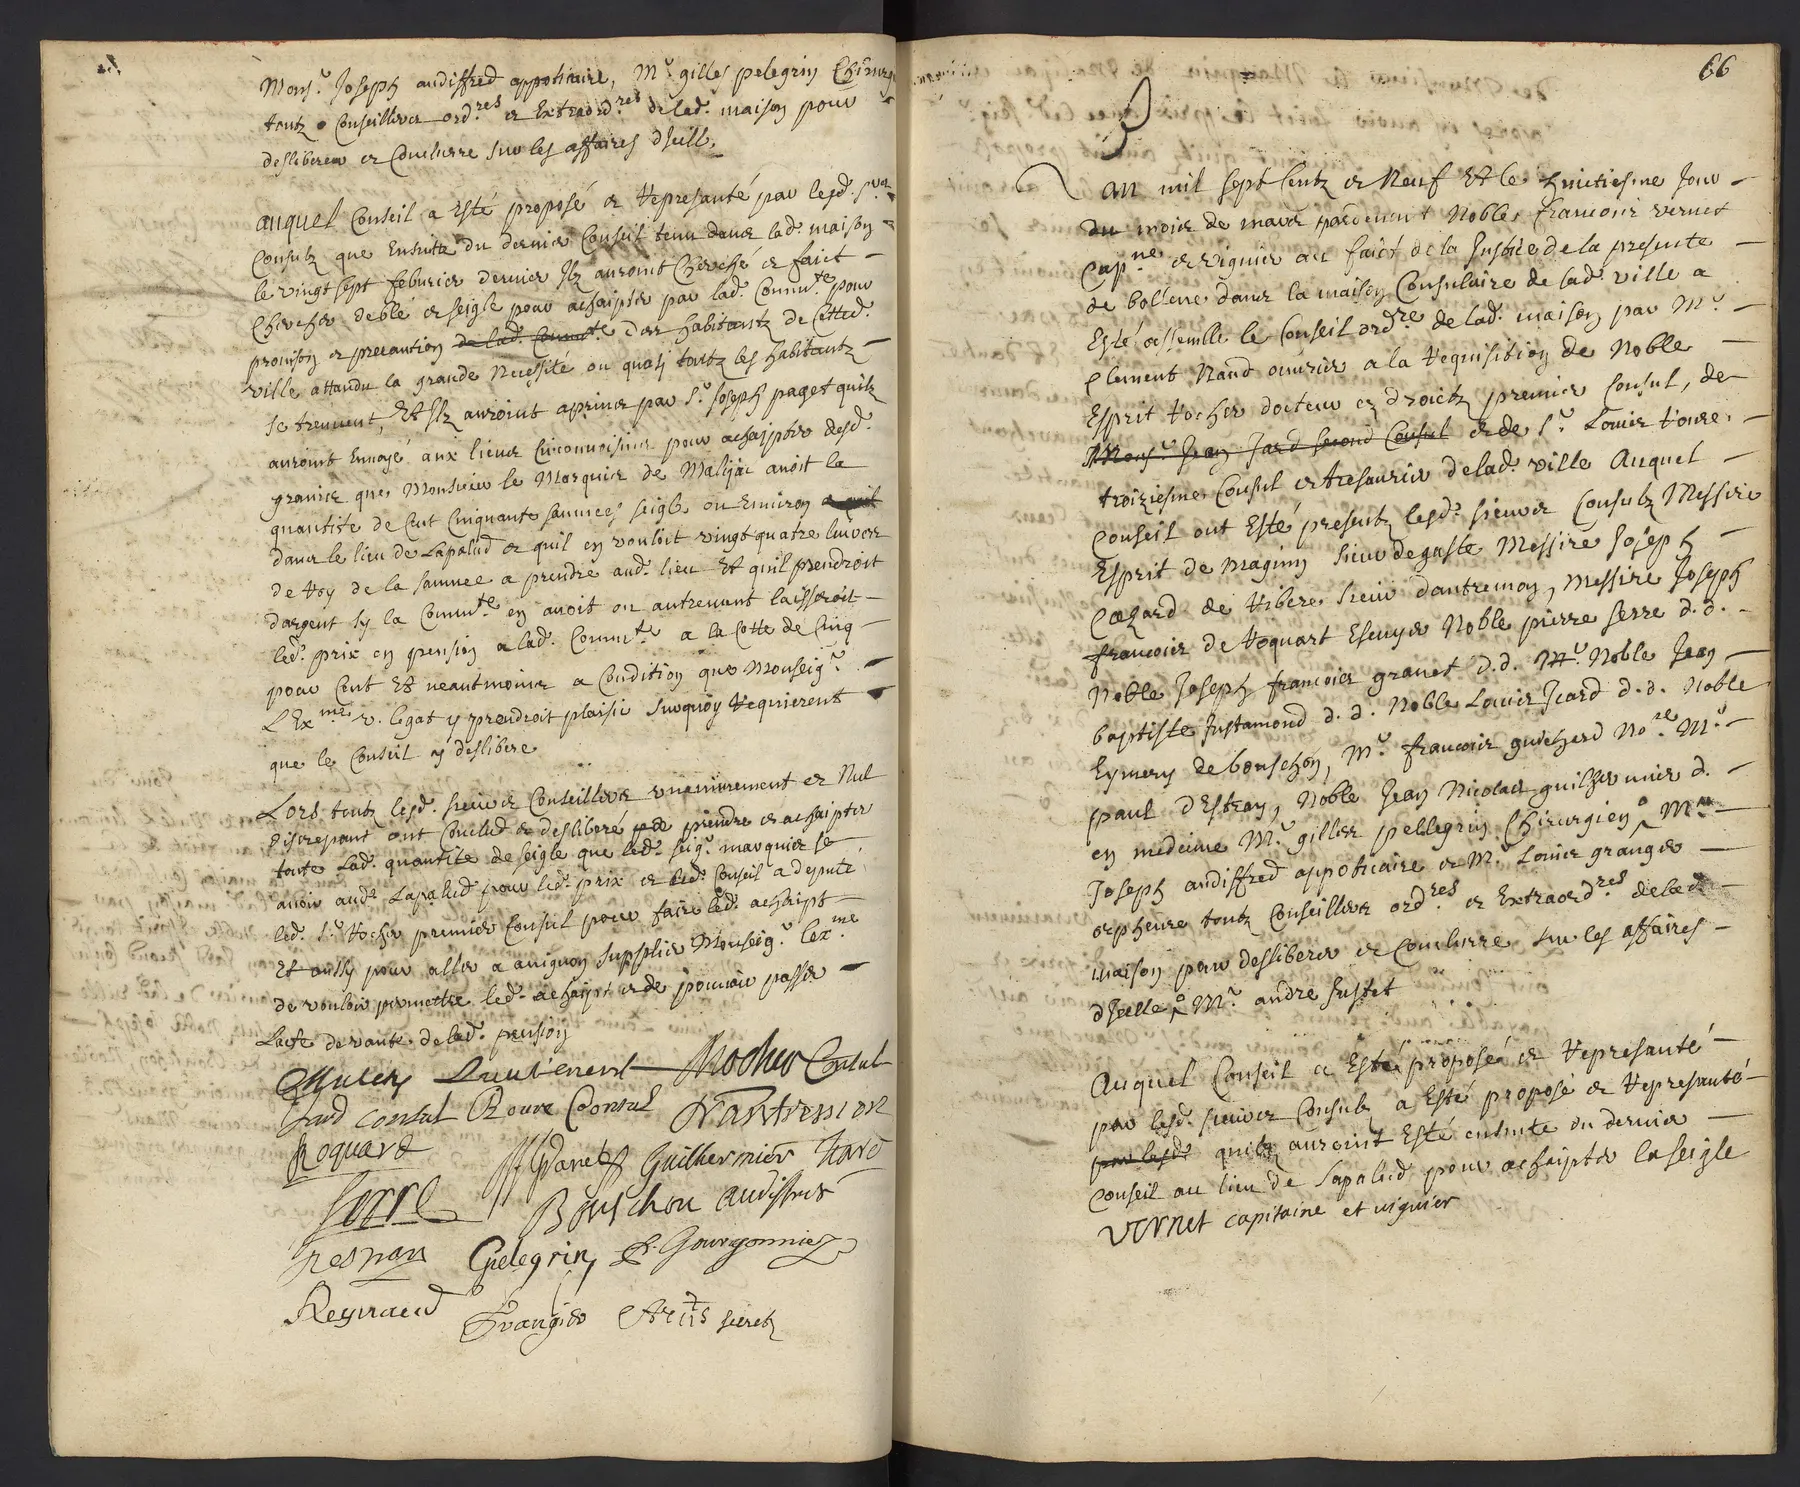 Mons.r Joseph audiffred appoticaire, M.r gilles pelegrin Chirurg
toutz Conseilliers ord.res et Extraord.res de lad. maison pour
deslibérer et Conclurre sur les affaires d'Icell.
auquel Conseil a Esté proposé et Représanté par lesd. s.rs
Consulz que Ensuite du dernier Conseil tenu dans lad. maison
le vingt sept febvrier dernier Ilz auroint Cherché et faict
Chercher de blé et seigle pour achaipter par lad. Commu.té pour
provision et precaution de lad. Commu.té des habitantz de Cetted.
ville attandu la grande Necessité ou quasy toutz les habitantz
se treuvent, Et Ilz auroint aprins par s.r Joseph paget quilz
auroint Envoyé aux lieux Circonvoisins pour achaipter desd.
grains que Monsieur le Marquis de Malijac avoit la
quantite de Cent Cinquante saumées seigle ou Environ
dans le lieu de Lapalud et quil en vouloit vingt quatre livres
de Roy de la saumee a prendre aud. lieu Et quil prendroit
d'argent sy la Commu.té en avoit ou autrement laisseroit
led. prix en pension a lad. Commu.té a la Cotte de Cinq
pour Cent Et neantmoins a Condition que Monseig.r
L'Ex.me v. legat y prendroit plaisir Surquoy Requierent
que le Conseil y deslibere
Lors toutz lesd. sieurs Conseilliers unanimement et Nul
discrepant ont Conclud et desliberé de prendre et achaipter
toute Lad. quantité de seigle que led. seig.r marquis se
avoir aud. Lapalud pour led. prix et led. Conseil a deputé
led. s.r Rocher premier Consul pour faire led. achaipt
Et aussy pour aller a avignon supplier Monseig.r l'ex.me
de vouloir permettre led. achaipt et de pouvoir passer
Lacte de vante de lad. pension
Lieutenent Rocher Consul
Jard consul Roure Consul D'autremon
Roquard Granet Guilhermier Icard
Serre Bouschon audiffred
Pelegrin Gourgonnier
Reynaud Grangier secret.
66
L'an mil sept Centz et Neuf Et le huictiesme Jour
du mois de mars pardevant Noble francois vernet
Cap.ne et viguier au faict de la Justice de la presente
de bollene dans la maison Consulaire de lad. ville a
Esté assemblé le Conseil ord.re de lad. maison par M.r
Clement Naud ouvrier a la Requisition de Noble
Esprit Rocher docteur ez droictz premier Consul, de
Mons.r Jean Jard second Consul et de s.r Louis Roure
troiziesme Consul et tresaurier de lad. ville Auquel
Conseil ont Esté presentz lesd. sieurs Consulz Messire
Esprit de Magnin sieur degaste Messire Joseph
Cæzard de Ribere sieur dautremon, Messire Joseph
francois de Roquart Escuyer Noble pierre serre d.d.
Noble Joseph francois granet d.d. M.r Noble Jean
baptiste Justamond d.d. Noble Louis Icard d.d. Noble
Eymery de bouschon, M.r francois guichard No.re M.r
paul d'Estran, Noble Jean Nicolas guilhermier d.
en medecine M.r gilles pellegrin Chirurgien M.r
Joseph audiffred appoticaire et M.r Louis grangier
orpheure toutz Conseilliers ord.res et Extraord.res de lad.
maison pour deslibérer et Conclurre sur les affaires
d'Icelle, M.r andre Justet
Auquel Conseil a Esté proposé et Represanté
par lesd. sieurs Consulz a Esté proposé et Represanté
par lesd. quilz auroint Esté ensuite du dernier
Conseil au lieu de Lapalud pour achaipter la seigle
Vernet capitaine et viguier